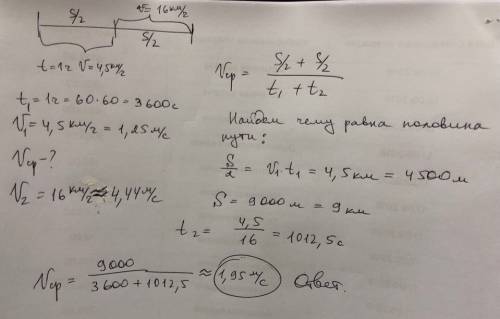 S/2 v= 16км/ч
S/2
t=1ч V=4,5км/ч
t₁=1ч=60·60=3600с
V₁=4,5км/ч=1,25м/с
Vср-?
V₂=16км/ч≈4,44м/с
Vср = (S/2 + S/2)/(t₁ + t₂)
Найдем чему равна половина
пути:
S/2 = V₁·t₁ = 4,5км = 4500м
S = 9000м = 9км
t₂ = 4,5/16 = 1012,5с
Vср = 9000/(3600+1012,5) ≈ 1,95м/с Ответ.